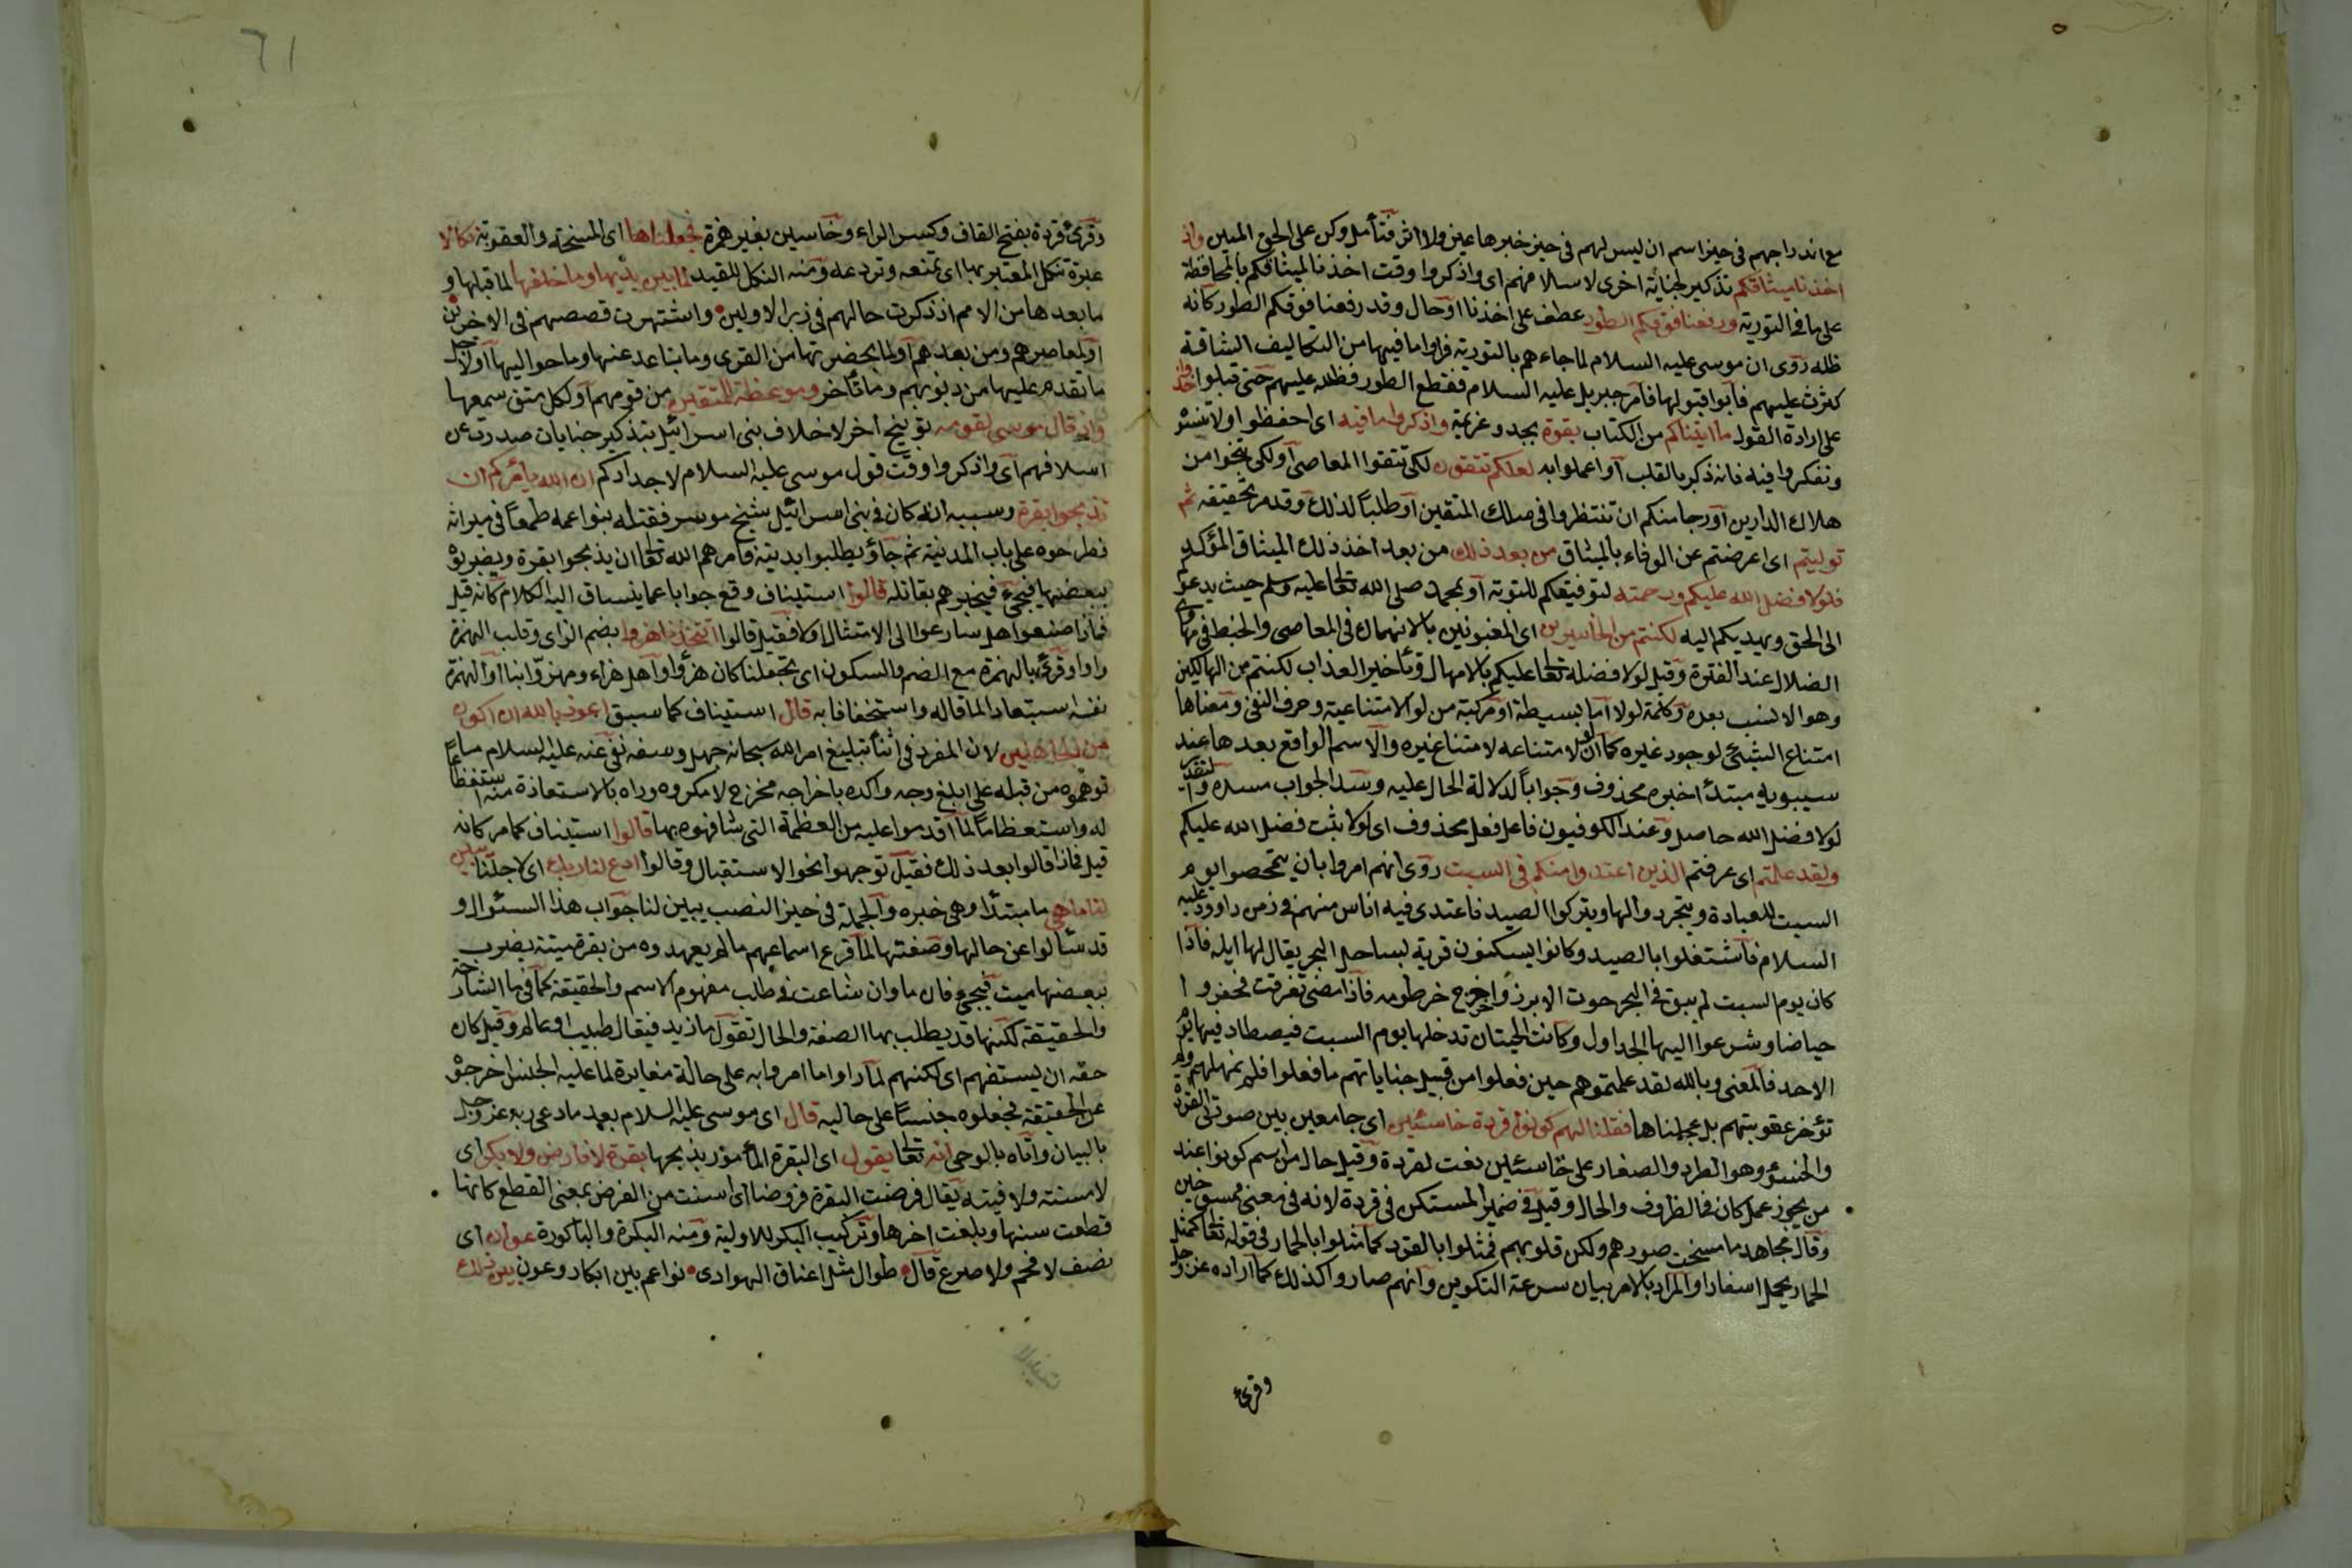 مع اندراجهم في حيز اسم ان ليس لهم في حيز خبرها عين ولا اثر فتأمل وكن على الحق المبين واذ
اخذنا ميثاقكم تذكير لجناية اخرى لاسلافهم اى واذكروا وقت اخذنا لميثاقكم بالمحافظة
على ما في التورية ورفعنا فوقكم الطور عطف على اخذنا او حال وقد رفعنا فوقكم الطور كأنه
ظلة روى ان موسى عليه السلام لما جاءهم بالتورية فراوا ما فيها من التكاليف الشاقة
كبرت عليهم فابوا قبولها فامر جبريل عليه السلام فقطع الطور فظلله عليهم حتى قبلوا خذوا
على ارادة القول ما اتيناكم من الكتاب بقوة بجد وعزيمة واذكروا ما فيه اى احفظوا ولا تنسوه
وتفكروا فيه فانه ذكر بالقلب او اعملوا به لعلكم تتقون لكى تتقوا المعاصى او لكى تنجوا من
هلاك الدارين او رجا منكم ان تنتظموا في سلك المتقين او طلبا لذلك وقد مر تحقيقه ثم
توليتم اى اعرضتم عن الوفاء بالميثاق من بعد ذلك من بعد اخذ ذلك الميثاق المؤكد
فلولا فضل الله عليكم ورحمته بتوفيقكم للتوبة او بمحمد صلى الله تعالى عليه وسلم حيث يدعوكم
الى الحق ويهديكم اليه لكنتم من الخاسرين اى المغبونين بالانهماك في المعاصى والخبط في مهاوى
الضلال عند الفترة وقيل لولا فضله تعالى عليكم بالامهال وتأخير العذاب لكنتم من الهالكين
وهو الانسب بعده وكلمة لولا اما بسيطة او مركبة من لو الامتناعية وحرف النفى ومعناها
امتناع الشيئ لوجود غيره كما ان لو لامتناعه لامتناع غيره والاسم الواقع بعدها عند
سيبويه مبتدأ خبره محذوف وجوابا لدلالة الحال عليه وسد الجواب مسده والتقدير
لولا فضل الله حاصل وعند الكوفيون فاعل فعل محذوف اى لولا ثبت فضل الله عليكم
ولقد علمتم اى عرفتم الذين اعتدوا منكم في السبت روى انهم امروا بان يتمحضوا يوم
السبت للعبادة ويتجردوا لها ويتركوا الصيد فاعتدى فيه اناس منهم في زمن داوود عليه
السلام فاشتغلوا بالصيد وكانوا يسكنون قرية بساحل البحر يقال لها ايلة فاذا
كان يوم السبت لم يبق في البحر حوت الا برز واخرج خرطومه فاذا مضى تفرقت فحفروا
حياضا وشرعوا اليها الجداول وكانت الحيتان تدخلها يوم السبت فيصطادونها يوم
الاحد فالمعنى وبالله لقد علمتموهم حين فعلوا من قبيل جناياتهم ما فعلوا فلم نمهلهم ولم
نؤخر عقوبتهم بل عجلناها فقلنا لهم كونوا قردة خاسئين اى جامعين بين صورتى القردة
والخسؤ وهو الطرد والصغار على خاسئين نعت لقردة وقيل حال من اسم كونوا عند
من يجوز عمل كان في الظروف والحال وقيل في ضمير المستكن في قردة لانه في معنى ممسوخين
وقال مجاهد ما مسخت صورهم ولكن قلوبهم فمثلوا بالقرد كما مثلوا بالحمار في قوله تعالى كمثل
الحمار يحمل اسفارا والمراد بالامر بيان سرعة التكوين وانهم صاروا كذلك كما اراده عز وجل
وقرئ
٦١
وقرئ قردة بفتح القاف وكسر الراء وخاسين بغير همزة فجعلناها اى المسخة والعقوبة نكالا
عبرة تنكل المعتبر بها اى تمنعه وتردعه ومنه النكل للقيد لما بين يديها وما خلفها لما قبلها و
ما بعدها من الامم اذ ذكرت حالهم في زبر الاولين واشتهرت قصصهم في الاخرين
او لمعاصيرهم ومن بعدهم او لما بحضرتها من القرى وما تباعد عنها وما حواليها او لاجل
ما تقدم عليها من ذنوبهم وما تأخر وموعظة للمتقين من قومهم او لكل متق سمعها
واذ قال موسى لقومه توبيخ اخر لاخلاف بنى اسرائيل بتذكير جنايات صدرت عن
اسلافهم اى واذكروا وقت قول موسى عليه السلام لاجدادكم ان الله يأمركم ان
تذبحوا بقرة وسببه انه كان في بنى اسرائيل شيخ موسر فقتله بنوا عمه طمعا في ميراثه
فطرحوه على باب المدينة ثم جاؤ يطلبوا بديته فامرهم الله تعالى ان يذبحوا بقرة ويضربوه
ببعضها فيحيى فيخبرهم بقاتله قالوا استيناف وقع جوابا عما ينساق اليه الكلام كأنه قيل
فماذا صنعوا هل سارعوا الى الامتثال اولا فقيل قالوا اتتخذنا هزوا بضم الزاى وقلب الهمزة
واوا وقرئ بالهمزة مع الضم والسكون اى تجعلنا كان هزؤا او اهل هزاء ومهزوا بنا او الهزؤ
نفسه استبعادا لما قاله واستخفافا به قال استيناف كما سبق اعوذ بالله ان اكون
من الجاهلين لان المفرد في اثنا تبليغ امر الله سبحانه جهل وسفه نفى عنه عليه السلام ما
توهموه من قبله على ابلغ وجه واكده باخراجه مخرج لا مكروه وراه بالاستعاذة منه استفظاعا
له واستعظاما لما اقدموا عليه من العظمة التى شافهوه بها قالوا استيناف كما مر كانه
قيل فماذا قالوا بعد ذلك فقيل توجهوا نحو الاستقبال وقالوا ادع لنا ربك اى لاجلنا يبين
لنا ما هى ما مبتدأ وهى خبره والجملة في حيز النصب يبين لنا جواب هذا السئوال و
قد سئالوا عن حالها وصفتها لما قرع اسماعهم ما لم يعهدوه من بقرة ميتة يضرب
ببعضها ميت فيحيى فان ما وان شاعت في طلب مفهوم الاسم والحقيقة كما في ما الشارحة
والحقيقة لكنها قد يطلب بها الصفة والحال تقول ما زيد فيقال طبيب او عالم وقيل كان
حقه ان يستفهم اى لكنهم لما راوا ما امروا به على حالة مغايرة لما عليه الجنس اخرجوه
عن الحقيقة فجعلوه جنسا على حاليه قال اى موسى عليه السلام بعد ما دعى ربه عز وجل
بالبيان واتاه بالوحى انه تعالى يقول اى البقرة المأمور بذبحها بقرة لا فارض ولا بكر اى
لا مسنة ولا فتية يقال فرضت البقرة فروضا اى اسنت من الفرض بمعنى القطع كانها
قطعت سنها وبلغت اخرها وتركيب البكر للاولية ومنه البكرة والباكورة عوان اى
نصف لا فحم ولا ضرع قال طوال مثل اعناق الهوادى نواعم بين ابكار وعون بين ذلك